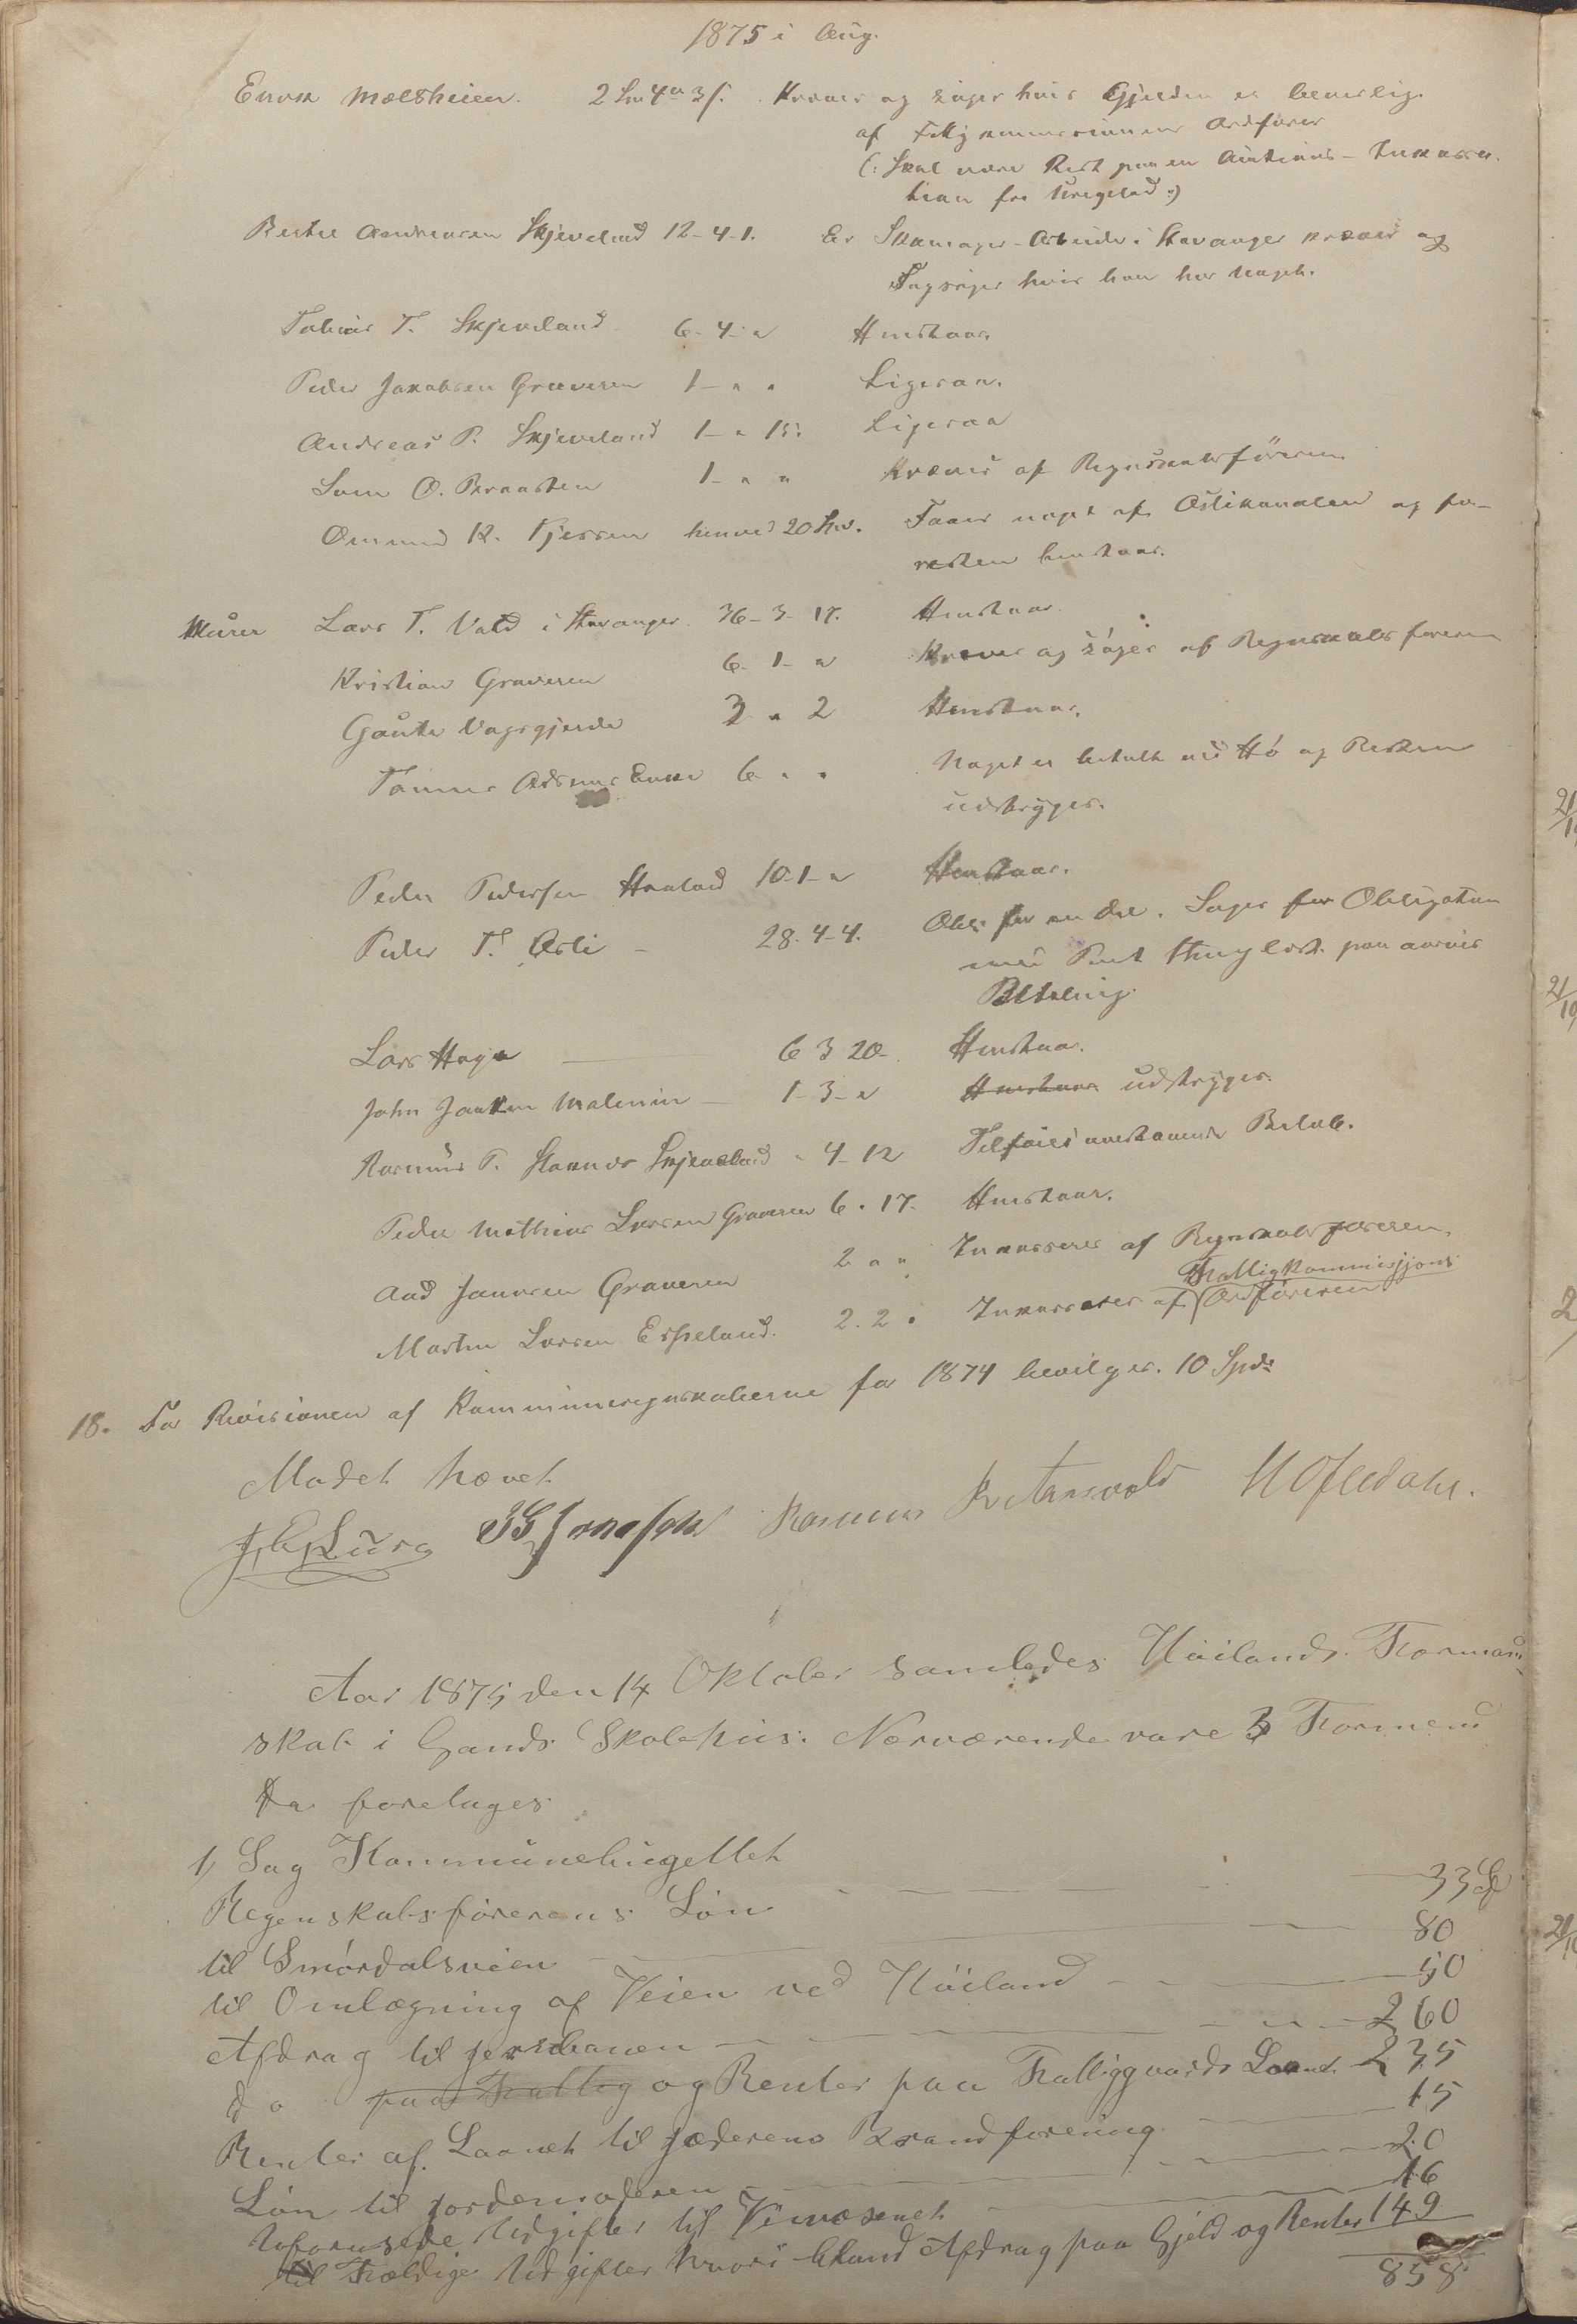 1875 i Aug.
Enok Mælsheien. 2 Spd 4 " 3 s. Kræves og søges hvis Gjelden er beviselig.
af Fttgkommissionens Ordfører
(: Skal være Rest paa en Auktions-Inkassa-
tion fra Uregelad :)
Bertel Andreasen Skjeveland 12-4-1. Er Skomager-Arbeider i Stavanger kræves og
Sagsøges hvis han har noget.
Tobias T. Skjeveland 6-4-" Henstaar.
Peder Jakobsen Graveren 1- " " Ligesaa.
Andreas P. Skjeveland 1- " 15. Ligesaa
Sven O. Braasten 1- " " Kræves af Regnskabsføreren.
Ommund K. Kjossen henved 20 Spd. Faaes noget af Aslikanalen og for-
resten henstaar.
Murer Lars T. Vold i Stavanger. 36-3-17. Henstaar
Kristian Graveren 6-1-" Kræves og søges af Regnskabsføreren
Gaute Vagsgjerde 3 " 2 Henstaar.
Tønnes Aasens Enke 6 " " Noget er betalt med Hø og Resten
udstryges.
Peder Pedersen Hauland 10-1-" Henstaar.
Peder T. Asli - 28-4-4. Obl. for en Del. Søges for Obligation
med Pant Thinglæst. paa anvis
Betaling.
Lars Haga 6 3 20- Henstaar.
John Jansen Malmin - 1-3-" Henstaar udstryges.
Rasmus T. Stoknes Skjeveland " 4-12 Tilføies uvedkommende Beløb.
Peder Mathias Larsen Graveren 6 " 17. Henstaar.
Aad Jansen Graveren 2 " " Inkasseres af Regnskabsføreren.
Martin Larsen Espeland. 2. 2 " Inkasseres af Fattigkommissjons Ordføreren
18. For Revisionen af Kommuneregnskaberne for 1874 bevilges. 10 Spd.
Mødet hævet
Rasmus
Aar 1875 den 14 Oktober samledes Høilands Forman
skab i Gands Skolehus. Nærværende vare 3 Formend
Da foretages
1, Sag Kommunebugettet
Regenskabsførerens Løn 33 Sp
til Smørdalsveien 80
til Omlægning af Veien ved Høiland 50
Afdrag til jernbanen 260
do paa Fattig og Renter paa Fattiggaards Laanet 235
Renter af Laanet til Jæderens Brandforening 15
Løn til Jordemoderen 20
Uforusede Udgifter til Veivæsenet 16
til Fældige Udgifter hvori bland Afdrag paa Gjeld og Renter 149
858